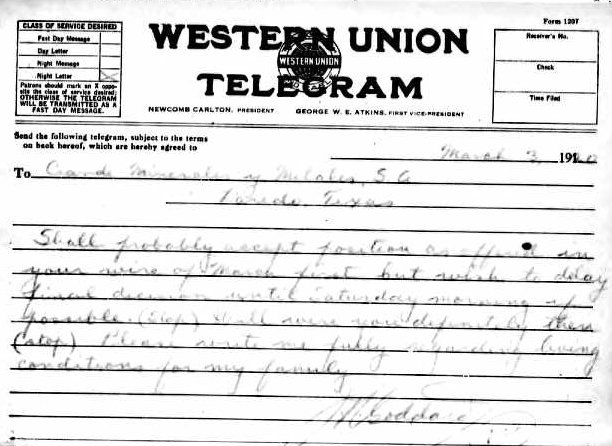 CLASS OF SERVICE DESIRED
Fast Day Message
Day Letter
Night Message
Night Letter X
Patrons should mark an X oppo-
site the class of service desired;
OTHERWISE THE TELEGRAM
WILL BE TRANSMITTED AS A
FAST DAY MESSAGE.
WESTERN UNION
WESTERN UNION
TELEGRAM
NEWCOMB CARLTON, PRESIDENT GEORGE W. E. ATKINS, FIRST VICE-PRESIDENT
Form 1207
Receiver's No.
Check
Time Filed
Send the following telegram, subject to the terms
on back hereof, which are hereby agreed to
March 3, 1920
To Minerales y Metales, S.A.
Laredo, Texas
Shall probably accept position as offered in
your wire of March first but wish to delay
final decision until Saturday morning if
possible. (Stop) Shall wire you definitely then
(stop) Please write me fully regarding living
conditions for my family
Goddard